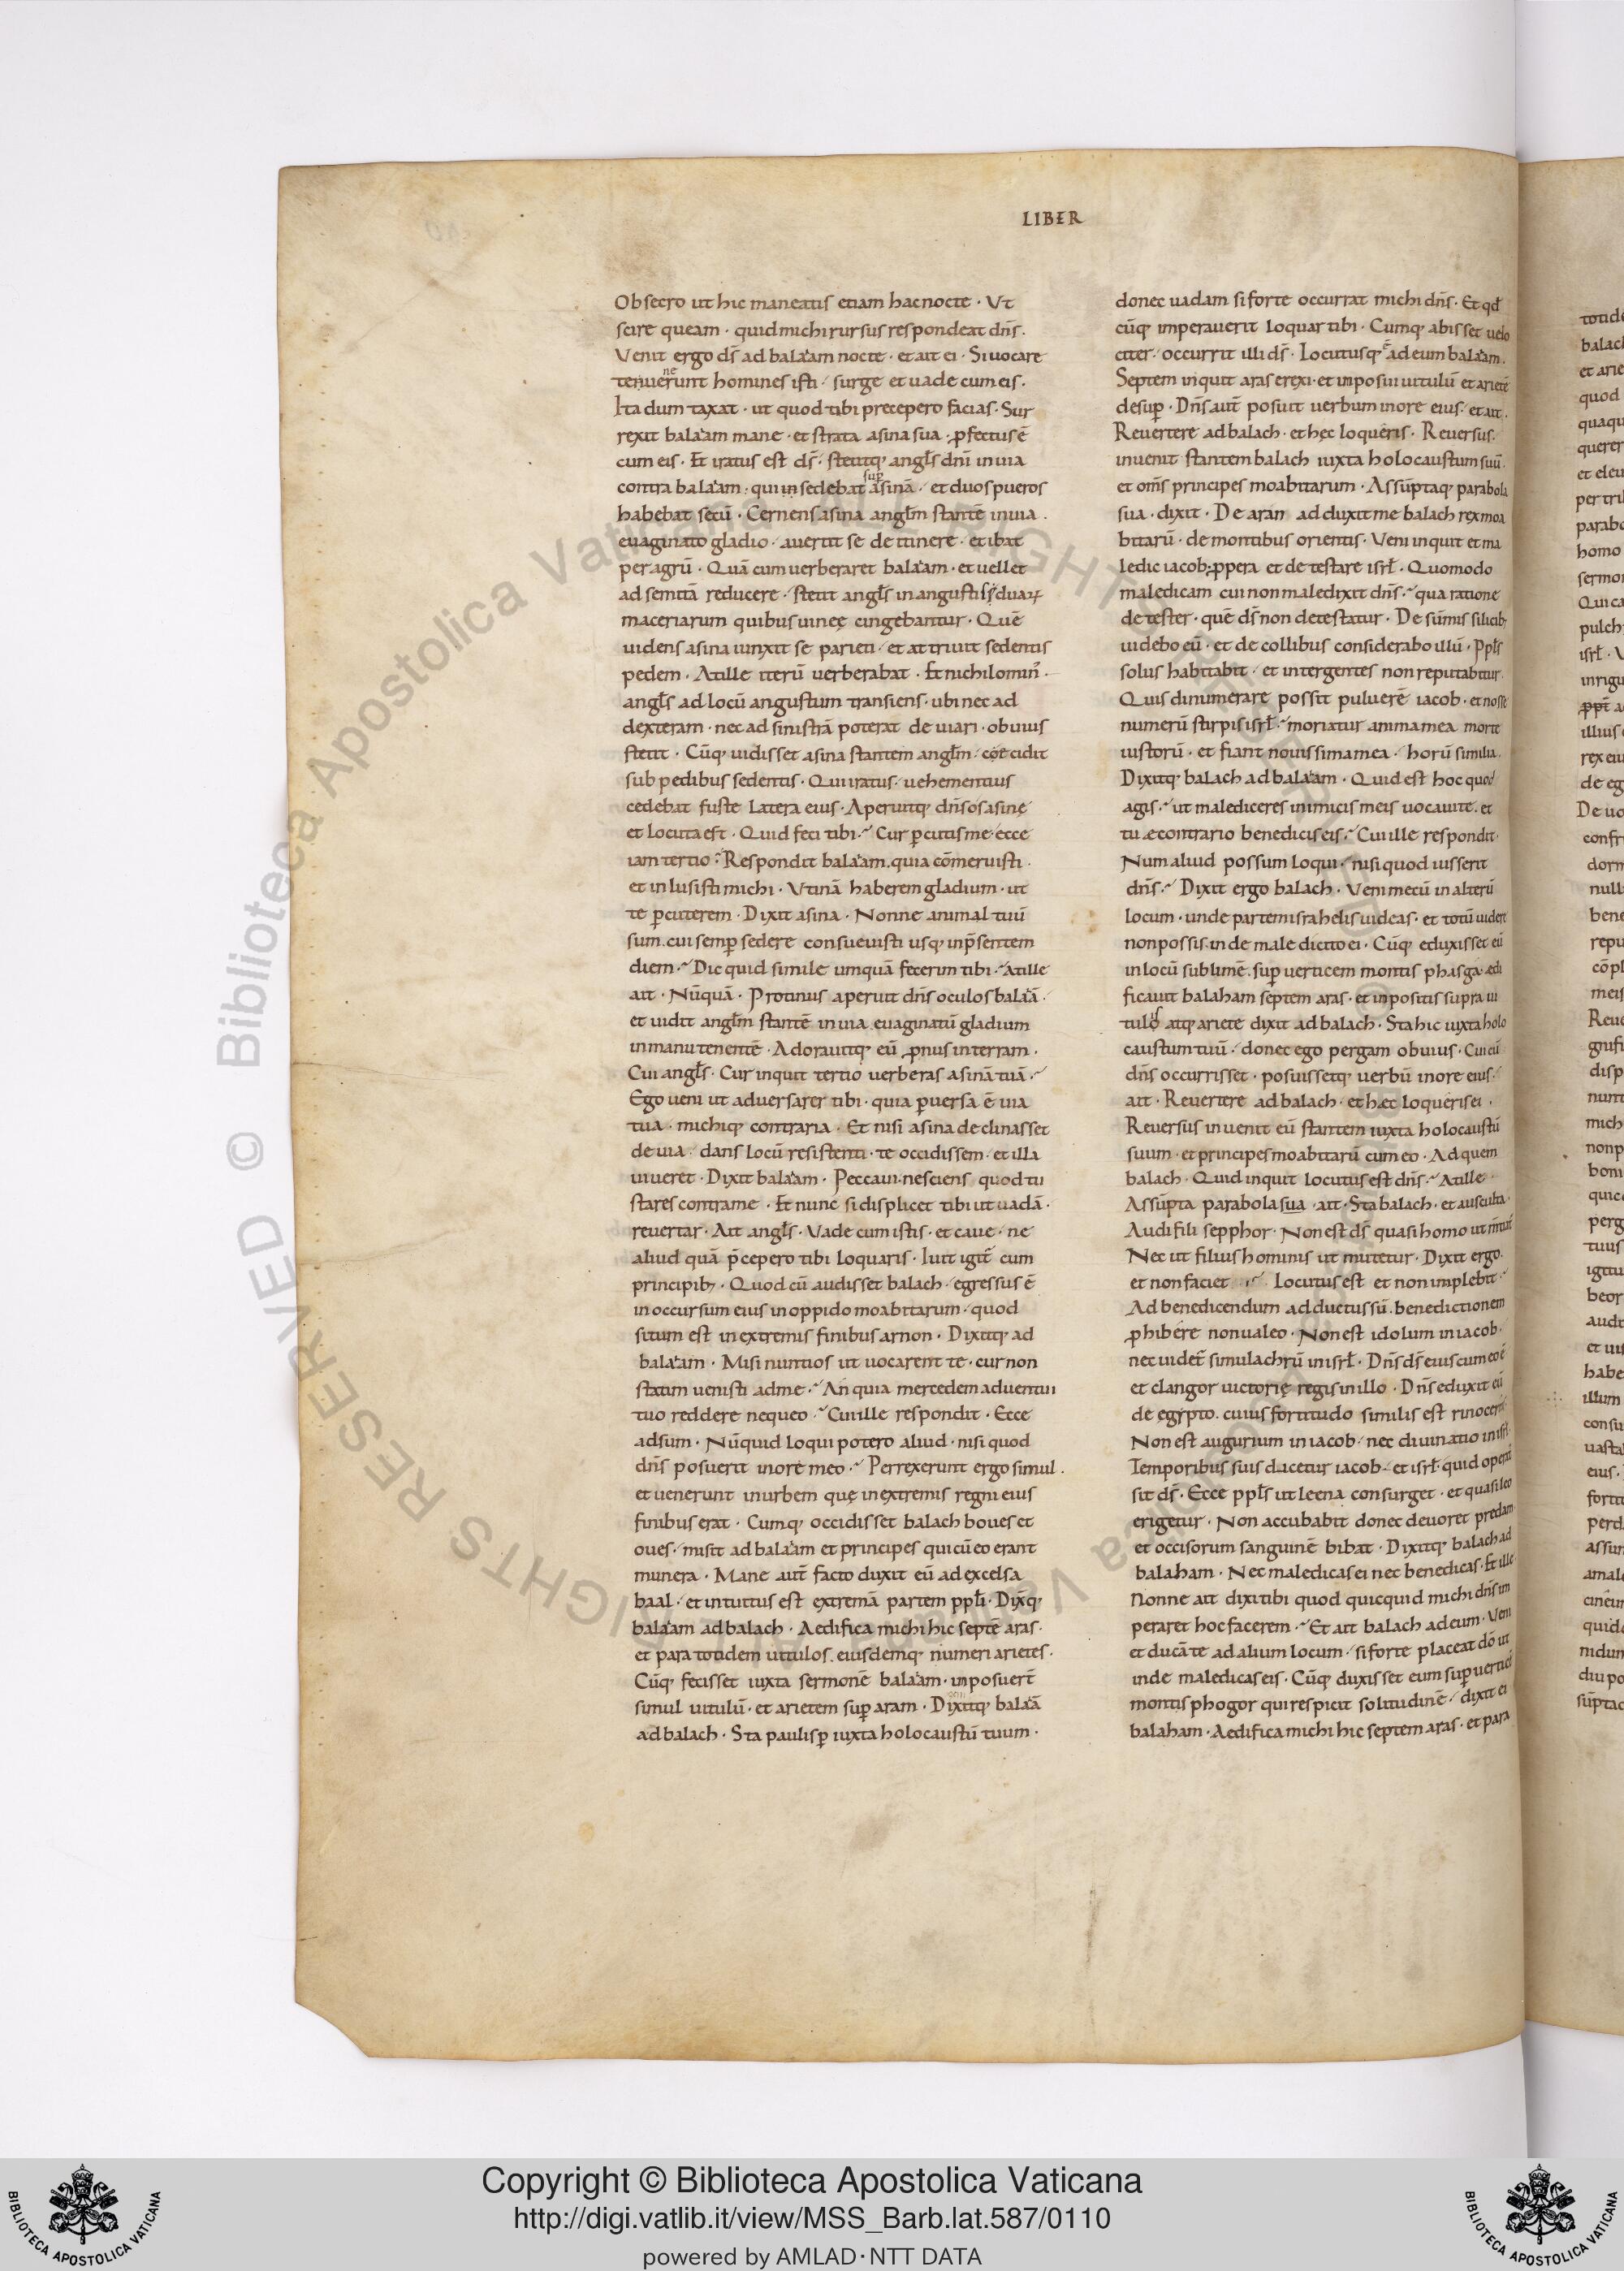 LIBER
Obsecro ut hic maneatis etiam hac nocte · Ut
scire queam · quid michi rursus respondeat dn̄s .
Venit ergo ds̄ ad balaam nocte · et ait ei · Si uocare
te uenerunt homines isti · surge et uade cum eis .
Ita dum taxat · ut quod tibi precepero facias · Sur
rexit balaam mane · et strata asina sua · ꝓfectus ē
cum eis · Et iratus est ds̄ · stetitq; angl̄s dnī in uia
contra balaam · qui insedebat asinā · et duos pueros
sup̄
habebat secū · Cernens asina angl̄m stantē in uia .
euaginato gladio · auertit se de itinere · et ibat
per agrū · Quā cum uerberaret balaam · et uellet
ad semitā reducere · stetit angl̄s in angustiis duaꝝ
maceriarum quibus uineę cingebantur · Quē
uidens asina iunxit se parieti · et attriuit sedentis
pedem · At ille iterū uerberabat · Et nichilomin᷒ ·
angl̄s ad locū angustum transiens · ubi nec ad
dexteram · nec ad sinistrā poterat deuiari · obuius
stetit · Cūq; uidisset asina stantem angl̄m · concidit
sub pedibus sedentis · Qui iratus · uehementius
cedebat fuste latera eius · Aperuitq; dn̄s os asinę
et locuta est · Quid feci tibi · Cur ꝑcutis me · ecce
iam tertio · Respondit balaam . quia cōmeruisti .
et inlusisti michi · Utinā haberem gladium · ut
te ꝑcuterem · Dixit asina · Nonne animal tuū
sum . cui semꝑ sedere consueuisti usq; in p̄sentem
diem · Dic quid simile umquā fecerim tibi · At ille
ait · Nūquā · Protinus aperuit dn̄s oculos balaā ·
et uidit angl̄m stantē in uia . euaginatū gladium
in manu tenentē · Adorauitq; eū ꝓnus in terram .
Cui angl̄s · Cur inquit tertio uerberas asinā tuā ·
Ego ueni ut aduersarer tibi · quia ꝑuersa ē uia
tua · michiq; contraria · Et nisi asina declinasset
de uia · dans locū resistenti · te occidissem · et illa
uiueret · Dixit balaam · Peccaui · nesciens quod tu
stares contra me · Et nunc si displicet tibi ut uadā ·
reuertar · Ait angl̄s · Vade cum istis · et caue · ne
aliud quā p̄cepero tibi loquaris · Iuit igit̄ cum
principib; · Quod cū audisset balach · egressus ē
in occursum eius in oppido moabitarum · quod
situm est in extremis finibus arnon · Dixitq; ad
balaam · Misi nuntios ut uocarent te · cur non
statim uenisti ad me · An quia mercedem aduentui
tuo reddere nequeo · Cui ille respondit · Ecce
adsum · Nūquid loqui potero aliud · nisi quod
dn̄s posuerit in ore meo · Perrexerunt ergo simul .
et uenerunt in urbem quę in extremis regni eius
finibus erat · Cumq; occidisset balach boues et
oues · misit ad balaam et principes qui cū eo erant
munera · Mane aut̄ facto duxit eū ad excelsa
baal · et intuitus est extremā partem ppl̄i · Dix̄q;
balaam ad balach · Aedifica michi hic septē aras ·
et para totidem uitulos . eiusdemq; numeri arietes ·
Cūq; fecisset iuxta sermonē balaam · inposuer̄t
simul uitulū · et arietem sup̄ aram · Dixitq; balaā
ad balach · Sta paulisꝑ iuxta holocaustū tuum ·
donec uadam si forte occurrat michi dn̄s · Et qd̄
cūq; imperauerit loquar tibi · Cumq; abisset uelo
citer · occurrit illi ds̄ · Locutusq; ē ad eum balaam .
Septem inquit aras erexi · et inposui uitulū et arietē
desup̄ · Dn̄s aut̄ posuit uerbum in ore eius · et ait .
Reuertere ad balach · et hęc loqueris · Reuersus .
inuenit stantem balach iuxta holocaustum suū .
et om̄s principes moabitarum · Assūptaq; parabola
sua · dixit · De aran adduxit me balach rex moa
bitarū · de montibus orientis · Veni inquit et ma
ledic iacob · ꝓpera et detestare isrl̄ · Quomodo
maledicam cui non maledixit dn̄s · qua ratione
detester · quē ds̄ non detestatur · De sūmis silicib;
uidebo eū · et de collibus considerabo illū · Ppl̄s
solus habitabit · et inter gentes non reputabitur .
Quis dinumerare possit puluerē iacob · et nosse
numerū stirpis isrl̄ · moriatur anima mea morte
iustorū · et fiant nouissima mea · horū similia .
Dixitq; balach ad balaam · Quid est hoc quod
agis · ut malediceres inimicis meis uocaui te . et
tu æcontrario benedicis eis · Cui ille respondit ·
Num aliud possum loqui · nisi quod iusserit
dn̄s · Dixit ergo balach · Veni mecū in alterū
locum · unde partem israhelis uideas · et totū uidere
non possis · inde maledicito ei · Cūq; eduxisset eū
in locū sublimē . sup̄ uerticem montis phasga · ædi
ficauit balaham septem aras · et inpositis supra ui
tulo atq; ariete dixit ad balach · Sta hic iuxta holo
caustum tuū · donec ego pergam obuius · Cui cū
dn̄s occurrisset · posuissetq; uerbū in ore eius ·
ait · Reuertere ad balach · et hæc loqueris ei ·
Reuersus inuenit eū stantem iuxta holocaustū
suum · et principes moabitarū cum eo · Ad quem
balach · Quid inquit locutus est dn̄s · At ille
Assūpta parabola sua · ait · Sta balach · et ausculta ·
Audi fili sepphor · Non est ds̄ quasi homo ut m̄tiat̄
Nec ut filius hominis ut mutetur · Dixit ergo .
et non faciet · Locutus est et non implebit ·
Ad benedicendum adductus sū . benedictionem
ꝓhibere non ualeo · Non est idolum in iacob ·
nec uidet̄ simulachrū in isrl̄ · Dn̄s ds̄ eius cum eo ē
et clangor uictorię regis in illo · Dn̄s eduxit eū
de egypto . cuius fortitudo similis est rinocerōt̄
Non est augurium in iacob · nec diuinatio in isrl̄ ·
Temporibus suis dicetur iacob · et isrl̄ · quid operat̄
sit ds̄ · Ecce ppl̄s ut leena consurget · et quasi leo
erigetur · Non accubabit donec deuoret predam
et occisorum sanguinē bibat · Dixitq; balach ad
balaham · Nec maledicas ei nec benedicas · Et ille
Nonne ait dixi tibi quod quicquid michi dn̄s im
peraret hoc facerem · Et ait balach ad eum · Veni
et ducā te ad alium locum · si forte placeat dō ut
inde maledicas eis · Cūq; duxisset eum sup̄ uerticē
montis phogor qui respicit solitudinē · dixit ei
balaham · Aedifica michi hic septem aras · et para
Copyright © Biblioteca Apostolica Vaticana
http://digi.vatlib.it/view/MSS_Barb.lat.587/0110
powered by AMLAD·NTT DATA